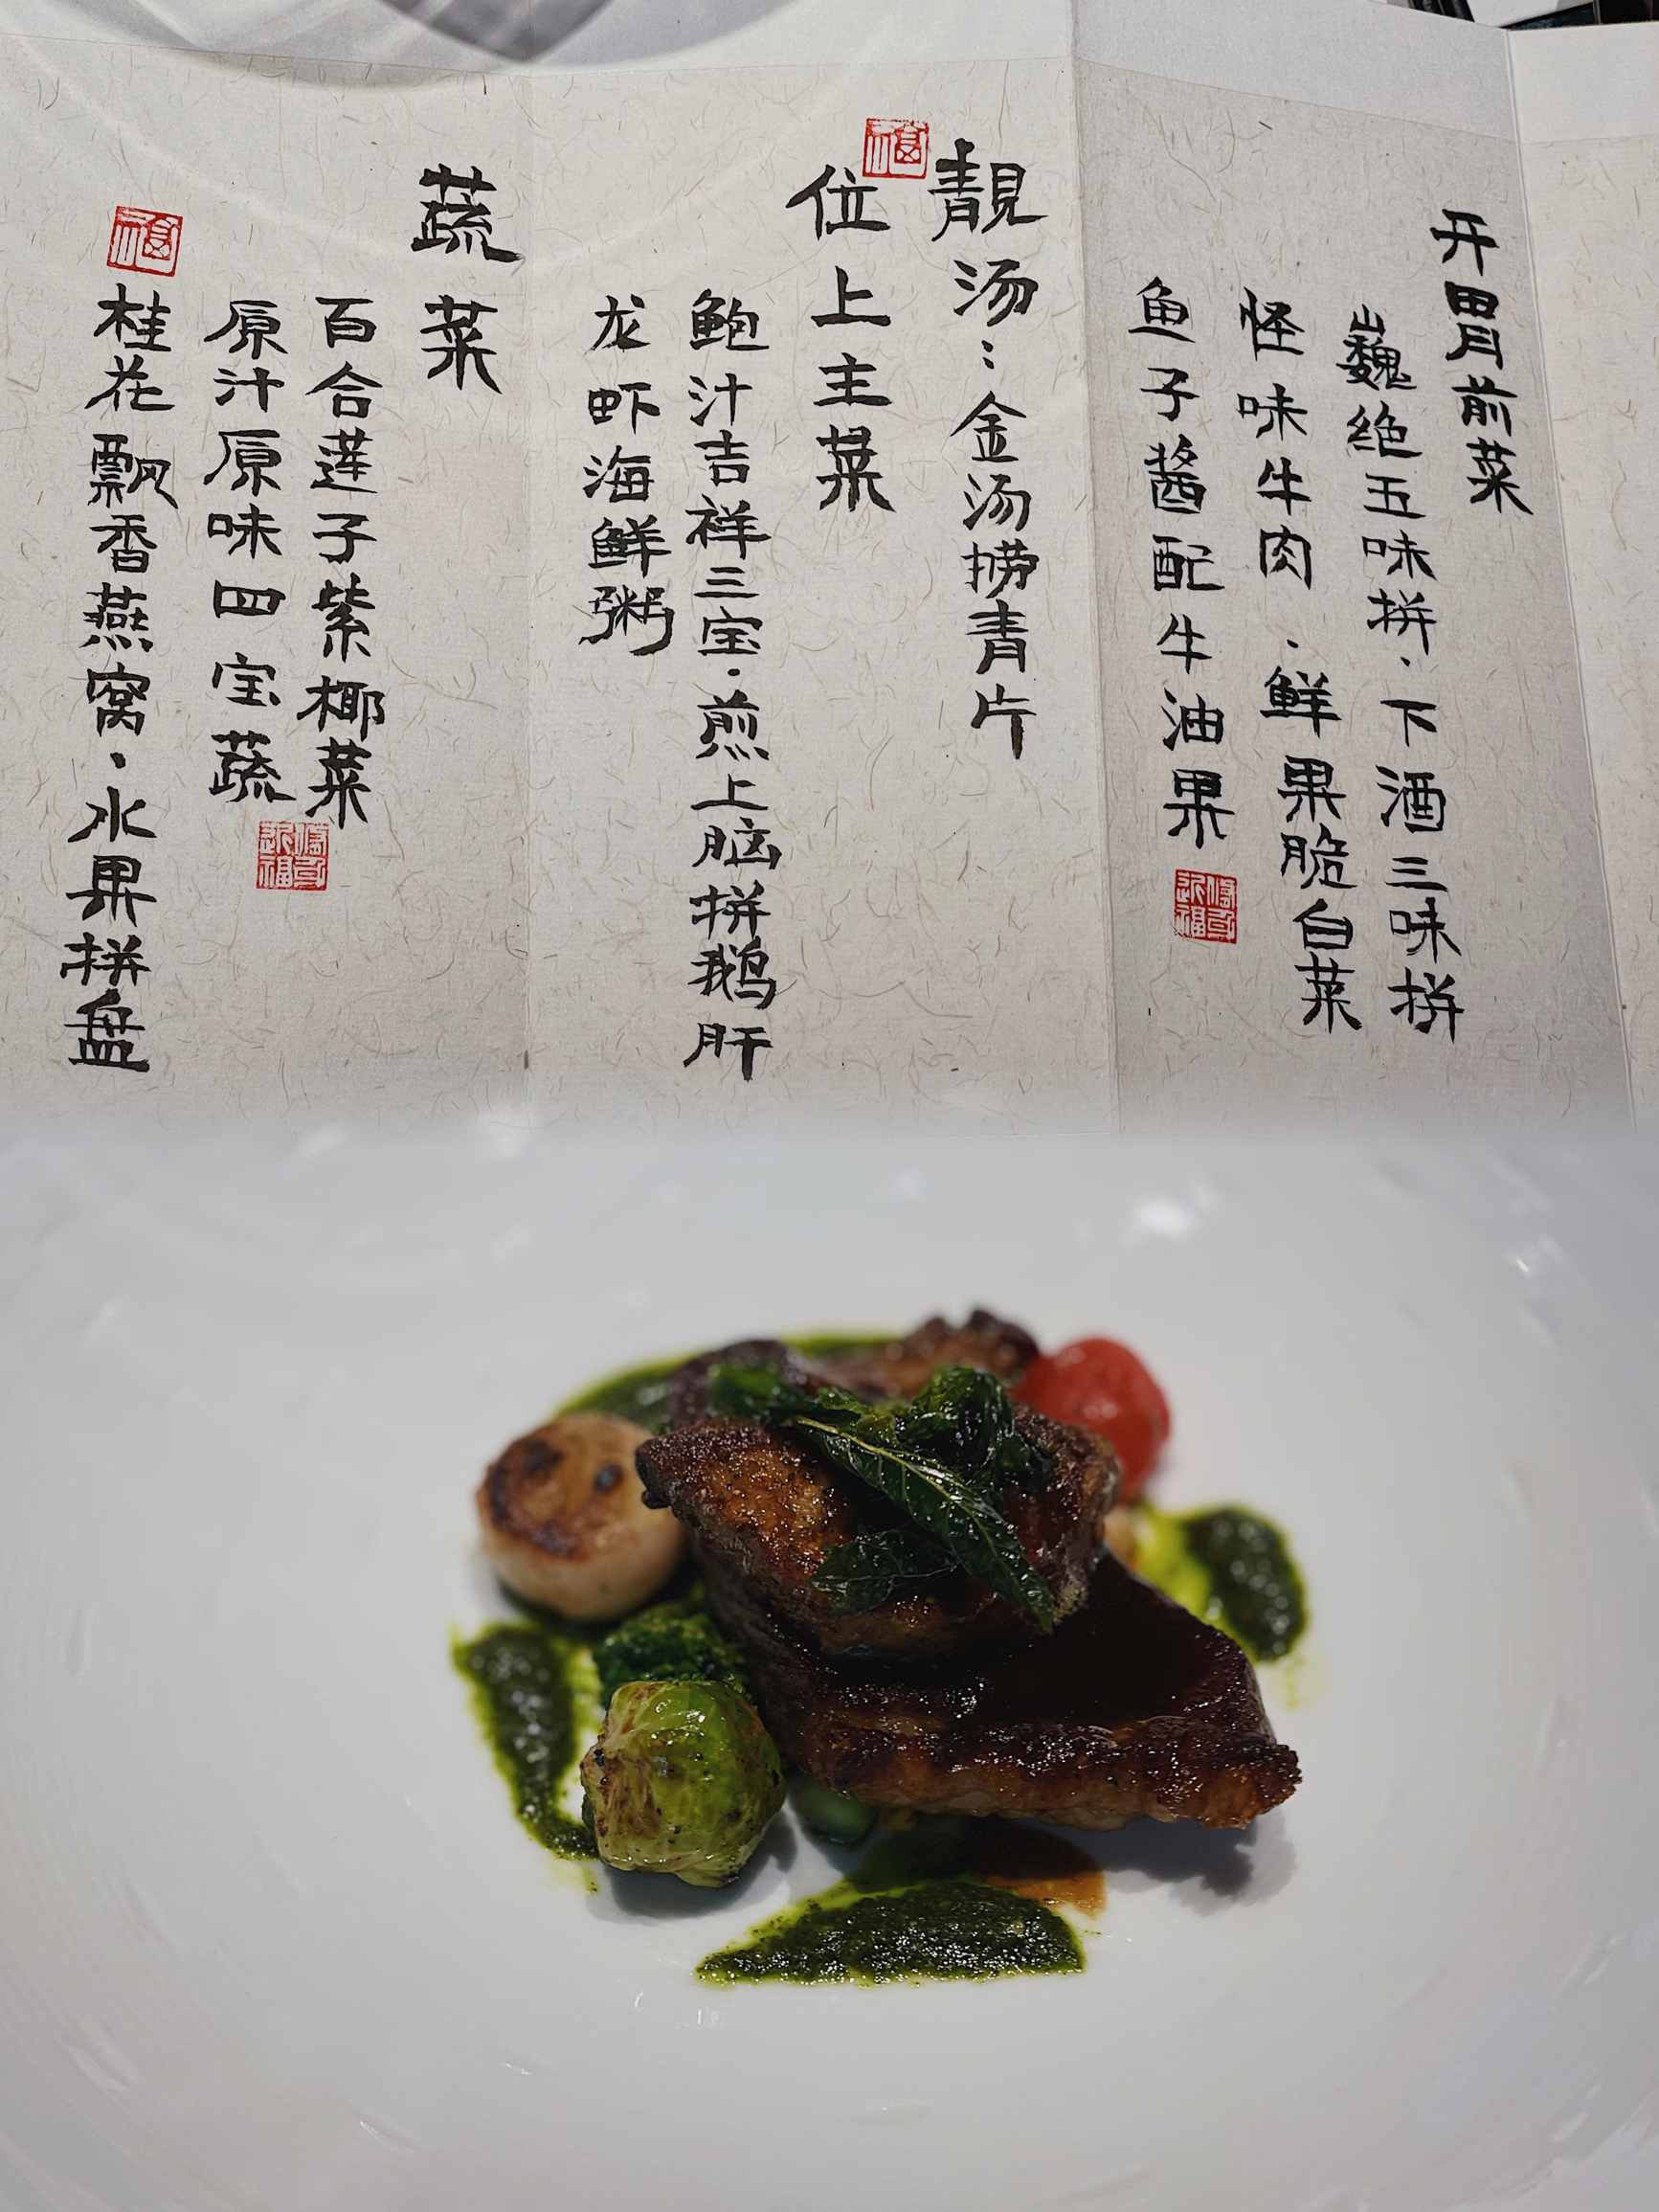 开胃前菜
巍绝五味拼·下酒三味拼
怪味牛肉·鲜果脆白菜
鱼子酱配牛油果
靓汤：金汤捞青片
位上主菜
鲍汁吉祥三宝·煎上脑拼鹅肝
龙虾海鲜粥
蔬菜
百合莲子紫椰菜
原汁原味四宝蔬
桂花飘香燕窝、水果拼盘
福
福